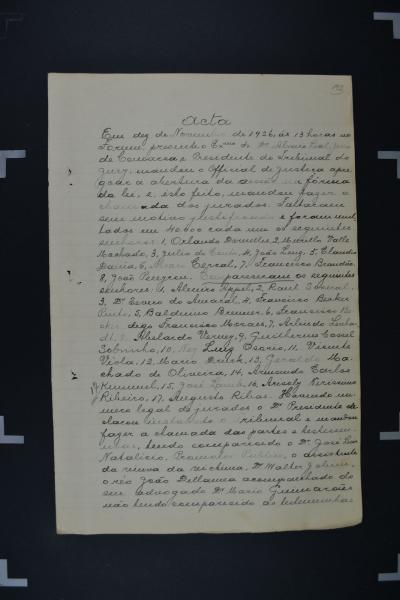 Acta
Em dez de Novembro de 1926, ás 13 horas no
Forum, presente o Exmo Sr. Dr. Alvaro Leal, Juiz
de Comarca e Presidente do Tribunal do
Jury, mandou o Official de Justiça apre
goar a abertura da sessão na fórma
da lei. E, esto feito, mandou fazer a
chamada dos jurados. Faltaram
sem motivo justificado e foram mul
tados em 40$000 cada um os seguintes
senhores: 1, Orlando 2, Murillo Valle
Machado, 3, Julio de 4, João Luiz, 5, Claudio
6, Alvaro 7, Francisco Brandão
8, João Compareceram os seguintes
senhores: 1, Appel, 2, Raul
3, Dr Severo do Amaral, 4, Francisco Becker
Pinto, 5, Balduino Brenner, 6, Francisco Be
digo Francisco Moraes, 7, Arlindo
8, Abelardo 9, Guilherme Cassel
Sobrinho, 10, Ney Luiz Osorio, 11, Vicente
Viola, 12, Mario 13, Geraldo Ma
chado de Oliveira, 14, Armando Carlos
Kummel, 15, José 16, Verissimo
Ribeiro, 17, Augusto Ribas. Havendo nu
mero legal de jurados o Dr Presidente de
clarou installado o tribunal e mandou
fazer a chamada das partes e testemu
nhas, tendo comparecido o Dr. José Luiz
Natalicio, Promotor Publico, o assistente
da viuva da victima, Dr Walter Jobim,
o réo João acompanhado do
seu advogado Dr Mario Guimarães
não tendo comparecido as testemunhas